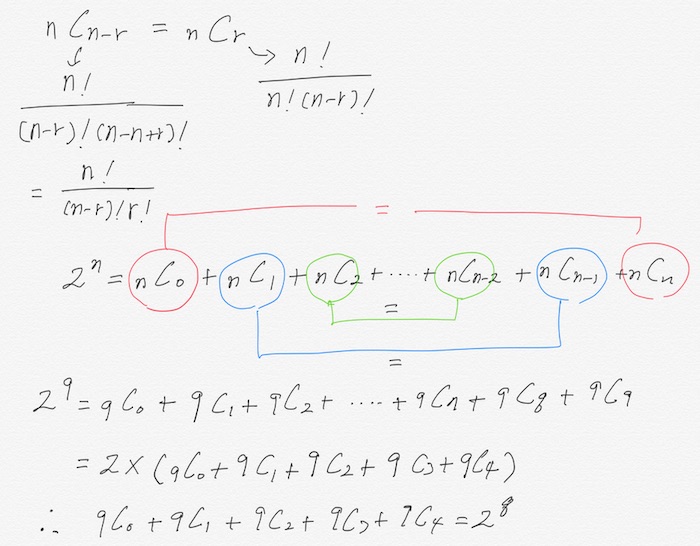 nCn-r = nCr
n!
n!
n!(n-r)!
(n-r)!(n-n+r)!
= n!
(n-r)!r!
=
2^n = nC0 + nC1 + nC2 + ····· + nCn-2 + nCn-1 + nCn
=
=
2^9 = 9C0 + 9C1 + 9C2 + ···· + 9C7 + 9C8 + 9C9
= 2×(9C0 + 9C1 + 9C2 + 9C3 + 9C4)
∴ 9C0 + 9C1 + 9C2 + 9C3 + 9C4 = 2^8